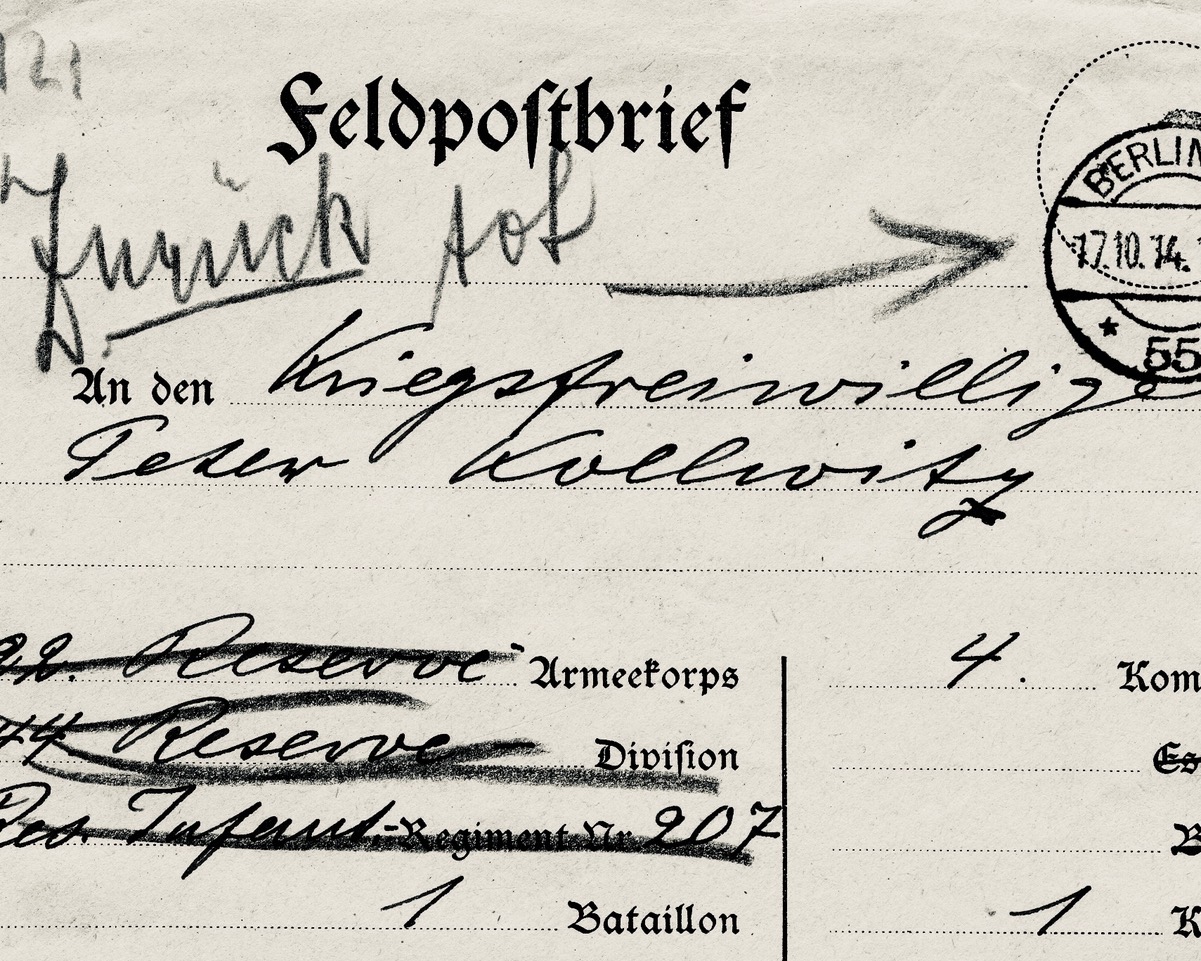 121
Feldpostbrief
BERLIN
Zurück tot
17.10.14.
* 55
An den Kriegsfreiwillige
Peter Kollwitz
22. Reserve Armeekorps
4. Kom
44 Reserve Division
Es
Res. Infant.-Regiment Nr 207
B
1 Bataillon
1 K